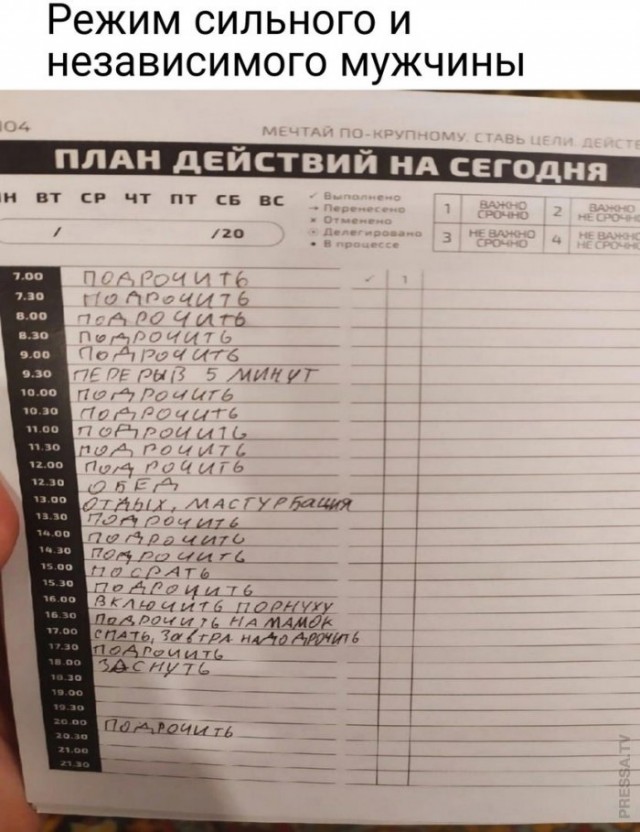 Режим сильного и
независимого мужчины
104
МЕЧТАЙ ПО-КРУПНОМУ. СТАВЬ ЦЕЛИ. ДЕЙСТВ
ПЛАН ДЕЙСТВИЙ НА СЕГОДНЯ
ПН ВТ СР ЧТ ПТ СБ ВС
/ /20
✓ Выполнено
→ Перенесено
× Отменено
Делегировано
• В процессе
1 ВАЖНО СРОЧНО
2 ВАЖНО НЕ СРОЧНО
3 НЕ ВАЖНО СРОЧНО
4 НЕ ВАЖНО НЕ СРОЧНО
7.00 ПОДРОЧИТЬ ✓ 1
7.30 ПОДРОЧИТЬ
8.00 ПОДРОЧИТЬ
8.30 ПОДРОЧИТЬ
9.00 ПОДРОЧИТЬ
9.30 ПЕРЕРЫВ 5 МИНУТ
10.00 ПОДРОЧИТЬ
10.30 ПОДРОЧИТЬ
11.00 ПОДРОЧИТЬ
11.30 ПОДРОЧИТЬ
12.00 ПОДРОЧИТЬ
12.30 ОБЕД
13.00 ОТДЫХ, МАСТУРБация
13.30 ПОДРОЧИТЬ
14.00 ПОДРОЧИТЬ
14.30 ПОДРОЧИТЬ
15.00 ПОСРАТЬ
15.30 ПОДРОЧИТЬ
16.00 ВКЛЮЧИТЬ ПОРНУХУ
16.30 ПОДРОЧИТЬ НА МАМОК
17.00 СПАТЬ, ЗАВТРА НАДО ДРОЧИТЬ
17.30 ПОДРОЧИТЬ
18.00 ЗАСНУТЬ
18.30
19.00
19.30
20.00 ПОДРОЧИТЬ
20.30
21.00
21.30
PRESSA.TV